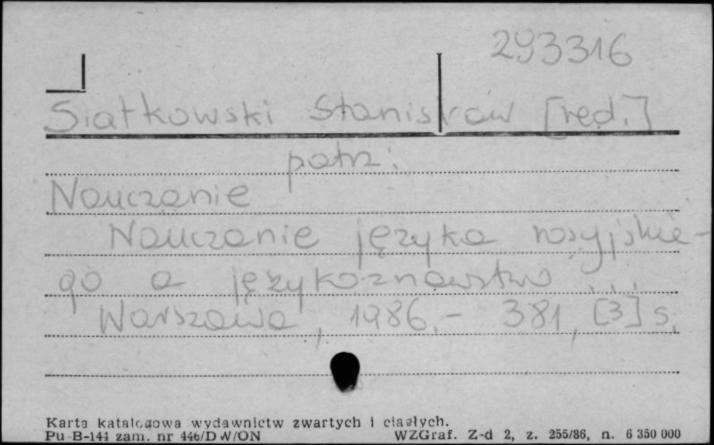 293316
Siatkowski Stanisław [red.]
patrz:
Nauczanie
Nauczanie języka rosyjskie-
go a językoznawstwo ...
Warszawa, 1986.- 381, [3] s.
Karta katalogowa wydawnictw zwartych i ciągłych.
Pu-B-144 zam. nr 446/DW/ON WZGraf. Z-d 2, z. 255/86, n. 6 350 000